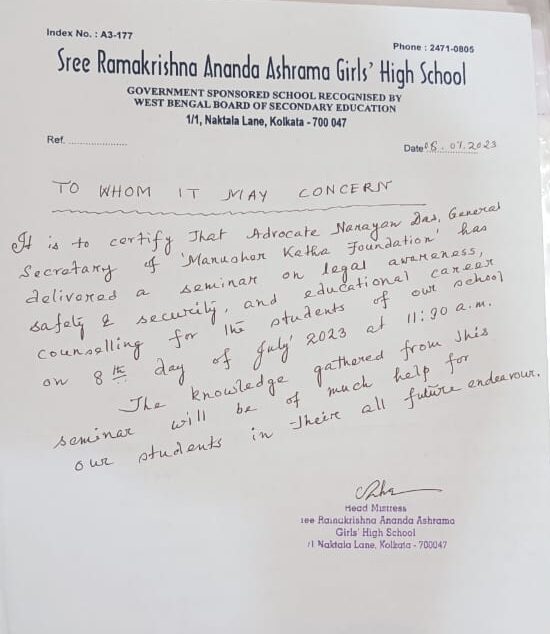 Index No. : A3-177
Phone : 2471-0805
Sree Ramakrishna Ananda Ashrama Girls' High School
GOVERNMENT SPONSORED SCHOOL RECOGNISED BY
WEST BENGAL BOARD OF SECONDARY EDUCATION
1/1, Naktala Lane, Kolkata - 700 047
Ref. ....................
Date 08.07.2023
TO WHOM IT MAY CONCERN
It is to certify That Advocate Narayan Das, General
Secretary of 'Manusher Katha Foundation' has
delivered a seminar on legal awareness,
safety & security, and educational career
counselling for the students of our school
on 8th day of July' 2023 at 11:30 a.m.
The knowledge gathered from this
seminar will be of much help for
our students in Their all future endeavour.
Head Mistress
ree Ramakrishna Ananda Ashrama
Girls' High School
/1 Naktala Lane, Kolkata - 700047